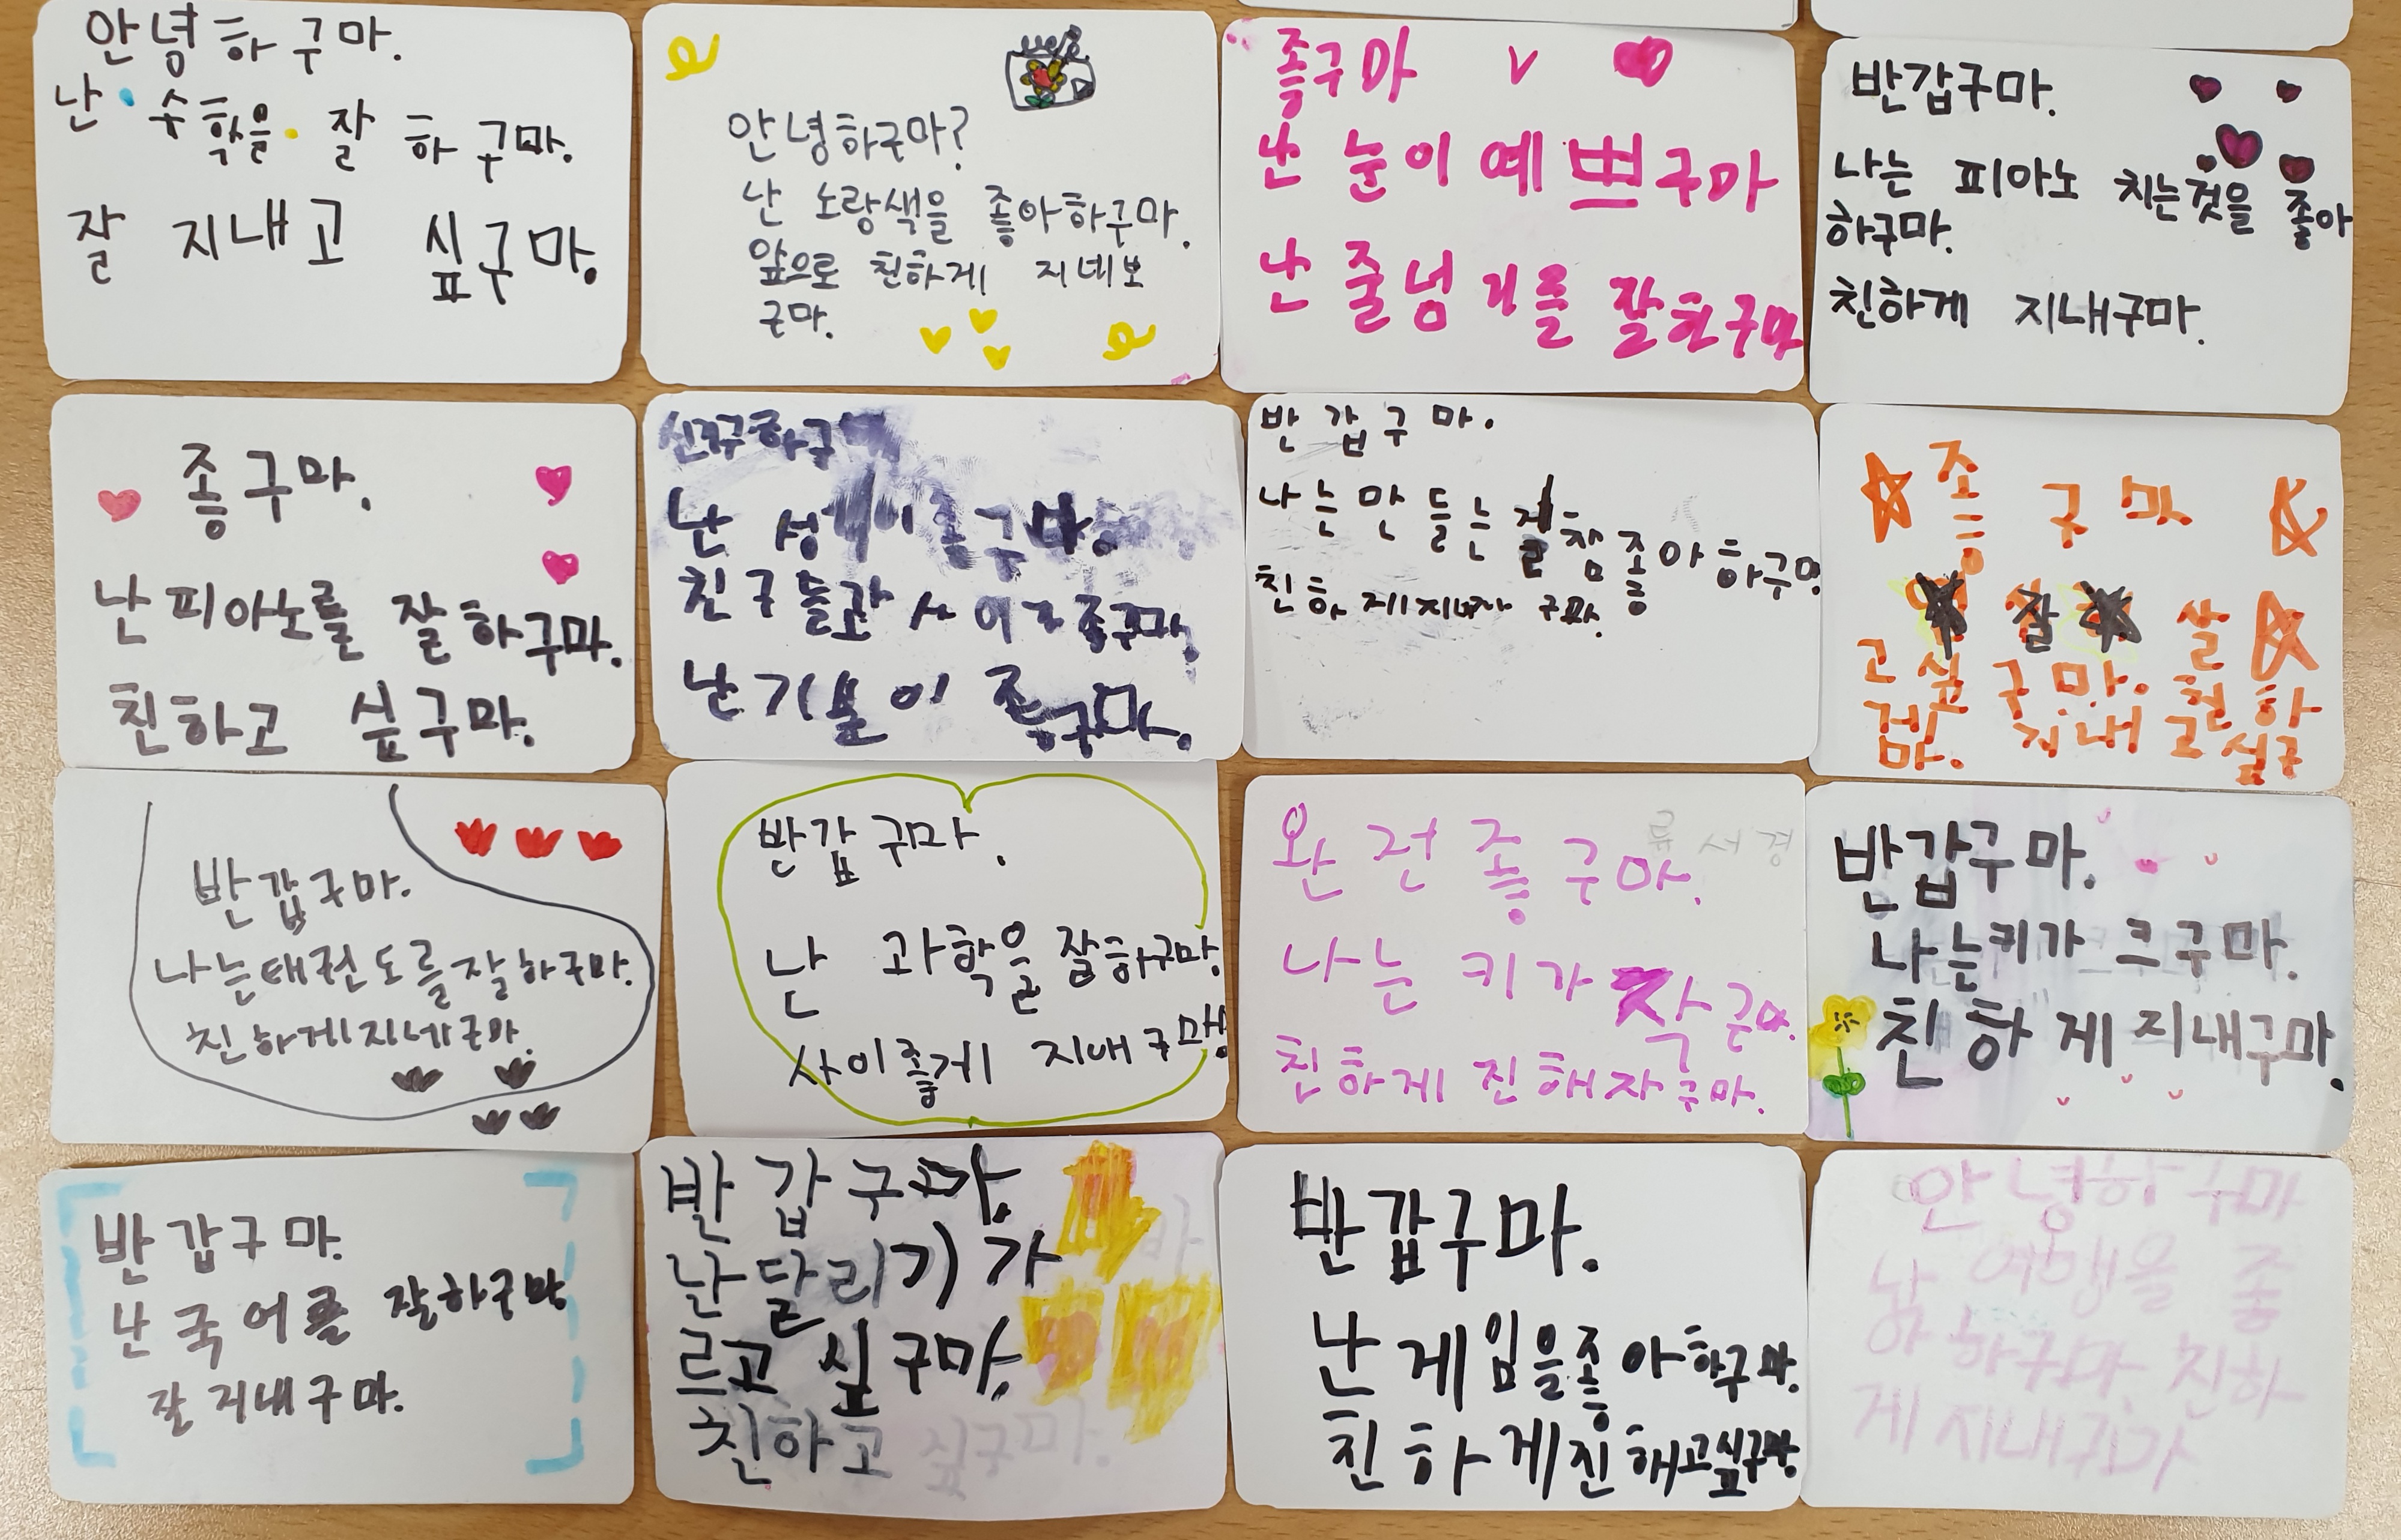 안녕하구마.
난 수학을 잘 하구마.
잘 지내고 싶구마.
안녕하구마?
난 노랑색을 좋아하구마.
앞으로 친하게 지네보
구마.
좋구마
난 눈이 예쁘구마
난 줄넘기를 잘하구마
반갑구마.
나는 피아노 치는것을 좋아
하구마.
친하게 지내구마.
좋구마.
난피아노를 잘하구마.
친하고 싶구마.
난 이 구마.
친구들과 사이가 좋구마.
난기분이 좋구마.
반갑구마.
나는만들는 참좋아하구마
친하게지내자구마.
좋구마
잘 살
고싶구마. 친하
게 지내고싶구
마.
반갑구마.
나는태권도를잘하구마.
친하게지네구마.
반갑구마.
난 과학을잘하구마.
사이좋게 지내구마!
류서경
완전좋구마.
나는키가 작구마.
친하게친해자구마.
반갑구마.
나는키가크구마.
친하게지내구마.
반갑구마.
난국어를잘하구마
잘지내구마.
반갑구마.
난달리기가
르고 싶구마.
친하고 싶구마.
반갑구마.
난게임을좋아하구마.
친하게친해고싶구마
안녕하구마
난 여행을 좋
아하구마. 친하
게지내구마